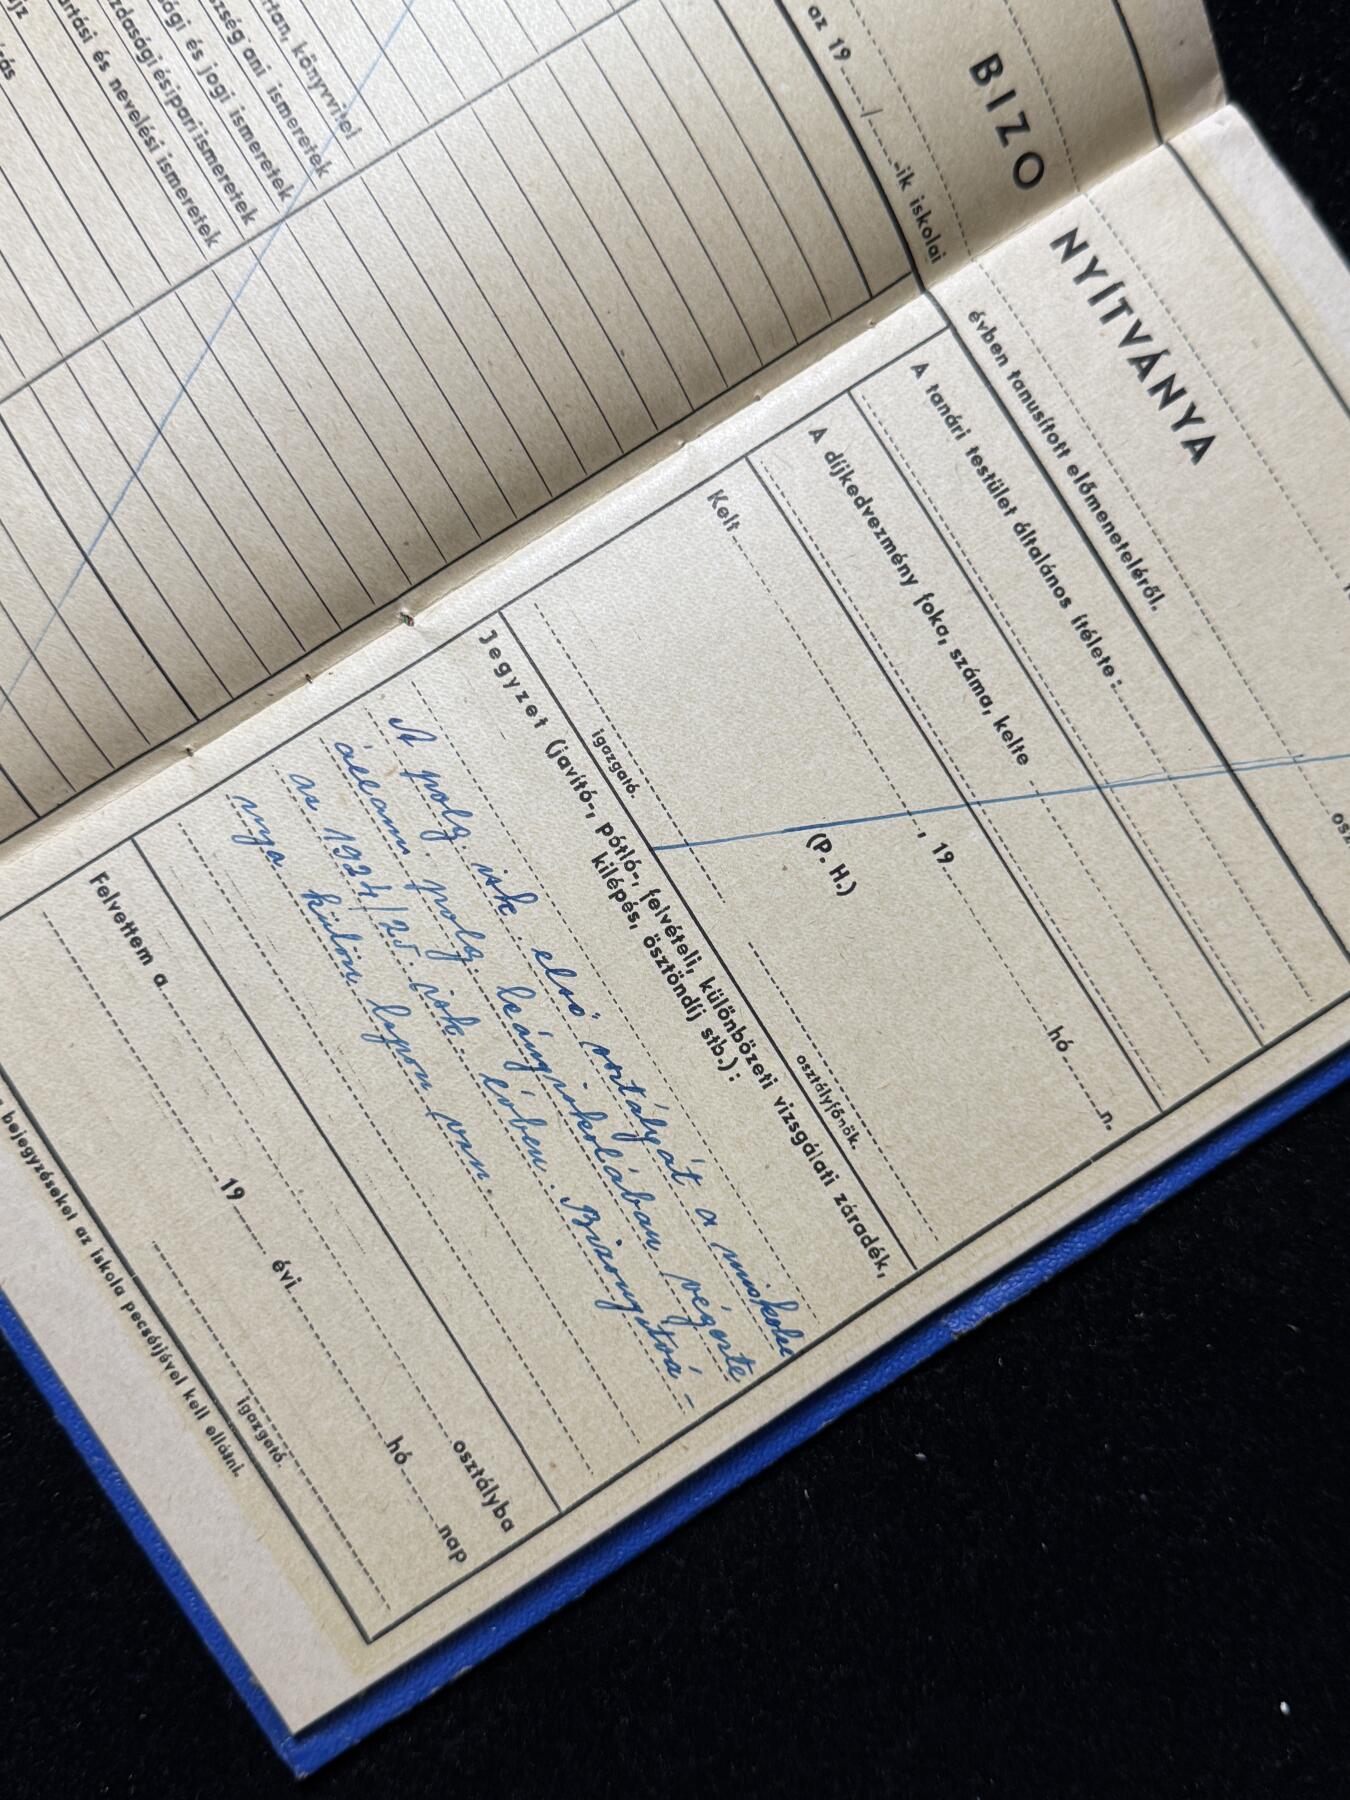 BIZO
NYÍTVÁNYA
az 19 / -ik iskolai
évben tanusított előmeneteléről.
rtan, könyvvitel
zség ani ismeretek
ági és jogi ismeretek
zdasági és ipari ismeretek
artási és nevelési ismeretek
jz
írás
A tanári testület általános ítélete:
A díjkedvezmény foka, száma, kelte
Kelt , 19 hó n.
(P. H.)
igazgató. osztályfőnök.
Jegyzet (javító-, pótló-, felvételi, különbözeti vizsgálati záradék,
kilépés, ösztöndíj stb.):
A polg. isk első osztályát a miskolci
állami polg. leányiskolában végezte
az 1924/25. isk. évben. Bizonyítvá-
nya külön lapon van.
Felvettem a osztályba
19 évi hó nap
igazgató.
bejegyzéseket az iskola pecsétjével kell ellátni.